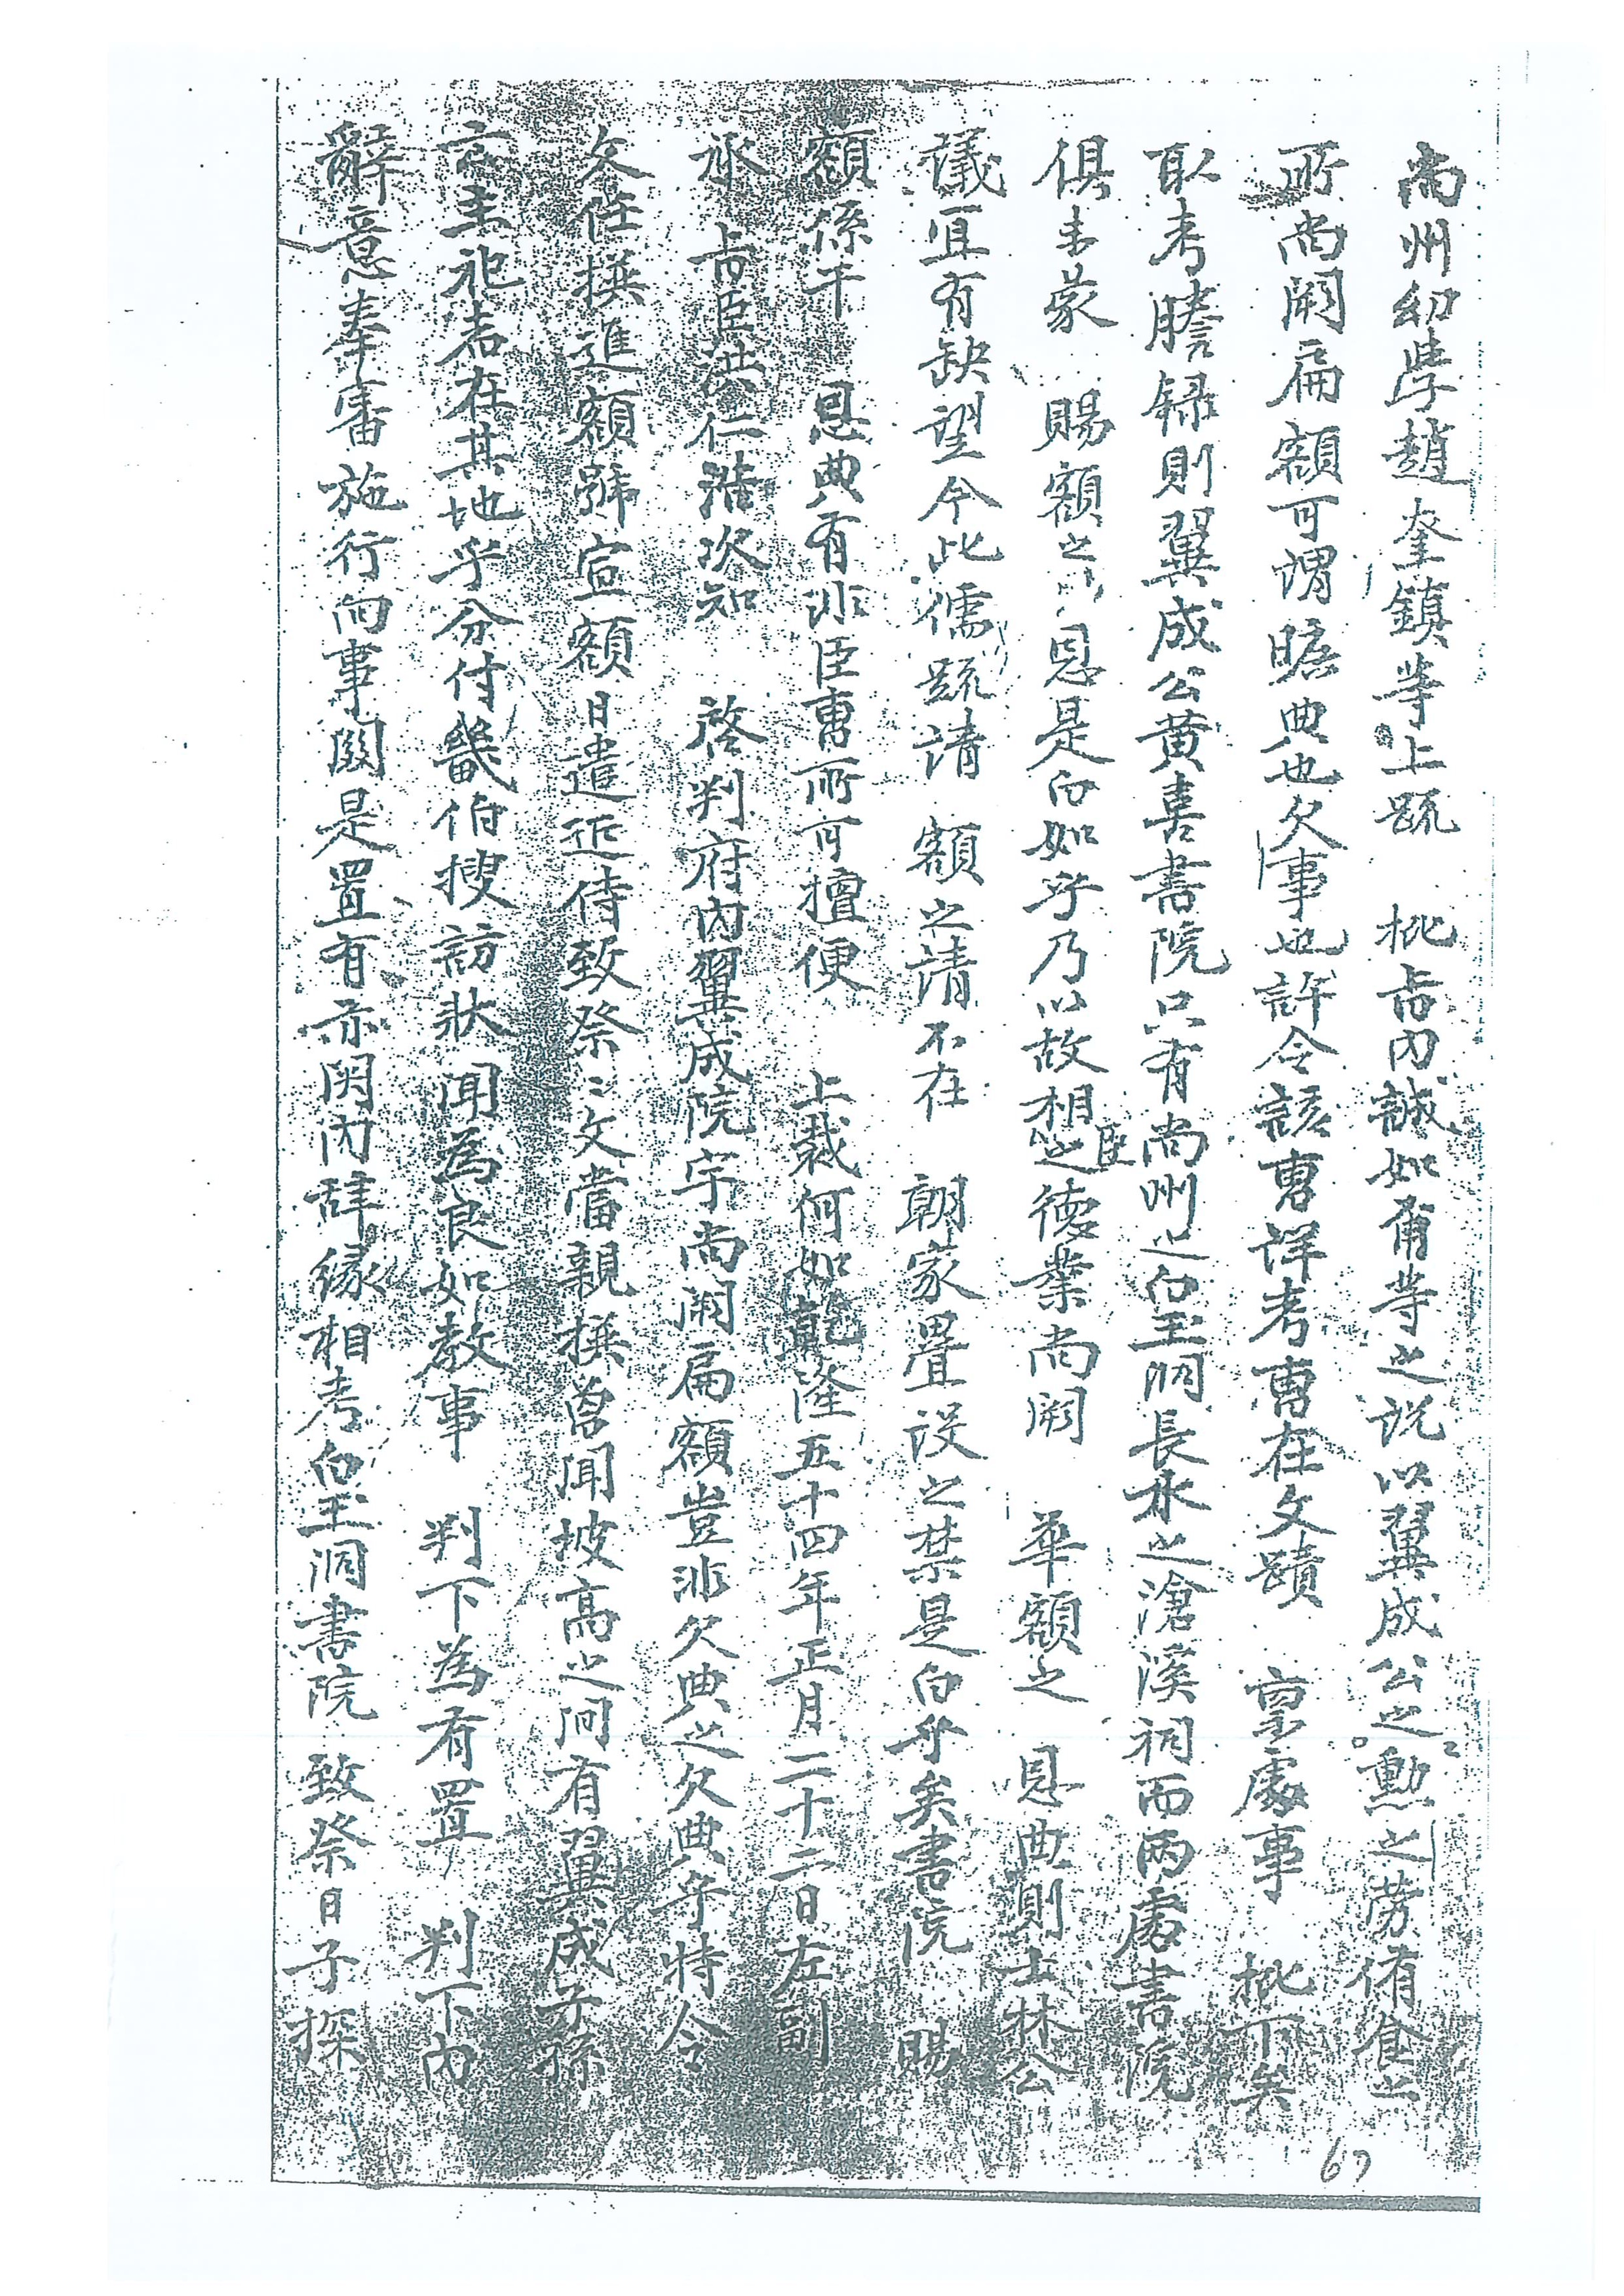 尙州幼學趙奎鎭等上疏 批旨內誠如甭等之說以翼成公之勳之勞侑食之
所尙闕扁額可謂曠典也欠事也許令該曺詳考曺在文蹟 稟處事 批下矣
取考謄錄則翼成公黃喜書院只有尙州之白玉洞長水之滄溪祠而兩處書院
俱未蒙 賜額之 恩是白如乎乃以故相臣之德業尙闕 華額之 恩典則士林公
議宜有缺望今此儒疏請 額之請不在 朝家疊設之禁是白乎矣書院 賜
額係干 恩典有非臣曺所可擅便 上裁何如乾隆五十四年正月二十二日左副
承 旨臣洪仁浩次知 啓判府內翼成院宇尙闕扁額豈非欠典之欠典乎特令
文任撰進額號宣額日遣近侍致祭〻文當親撰曾聞坡高之間有翼成子孫
云主祀者在其地乎分付畿伯搜訪狀 聞爲良如敎事 判下爲有置 判下內
辭意奉審施行向事關是置有亦關內辞緣相考白玉洞書院 致祭日子探
67